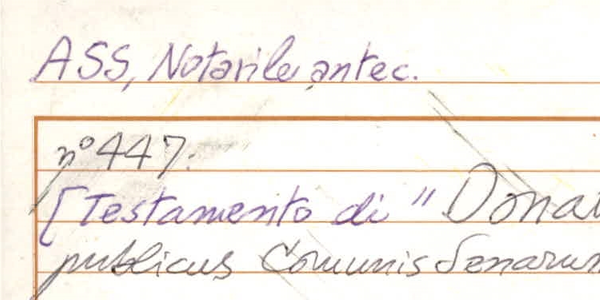 ASS, Notarile antec.
n° 447.
[Testamento di "Donat
publicus Comunis Senarum